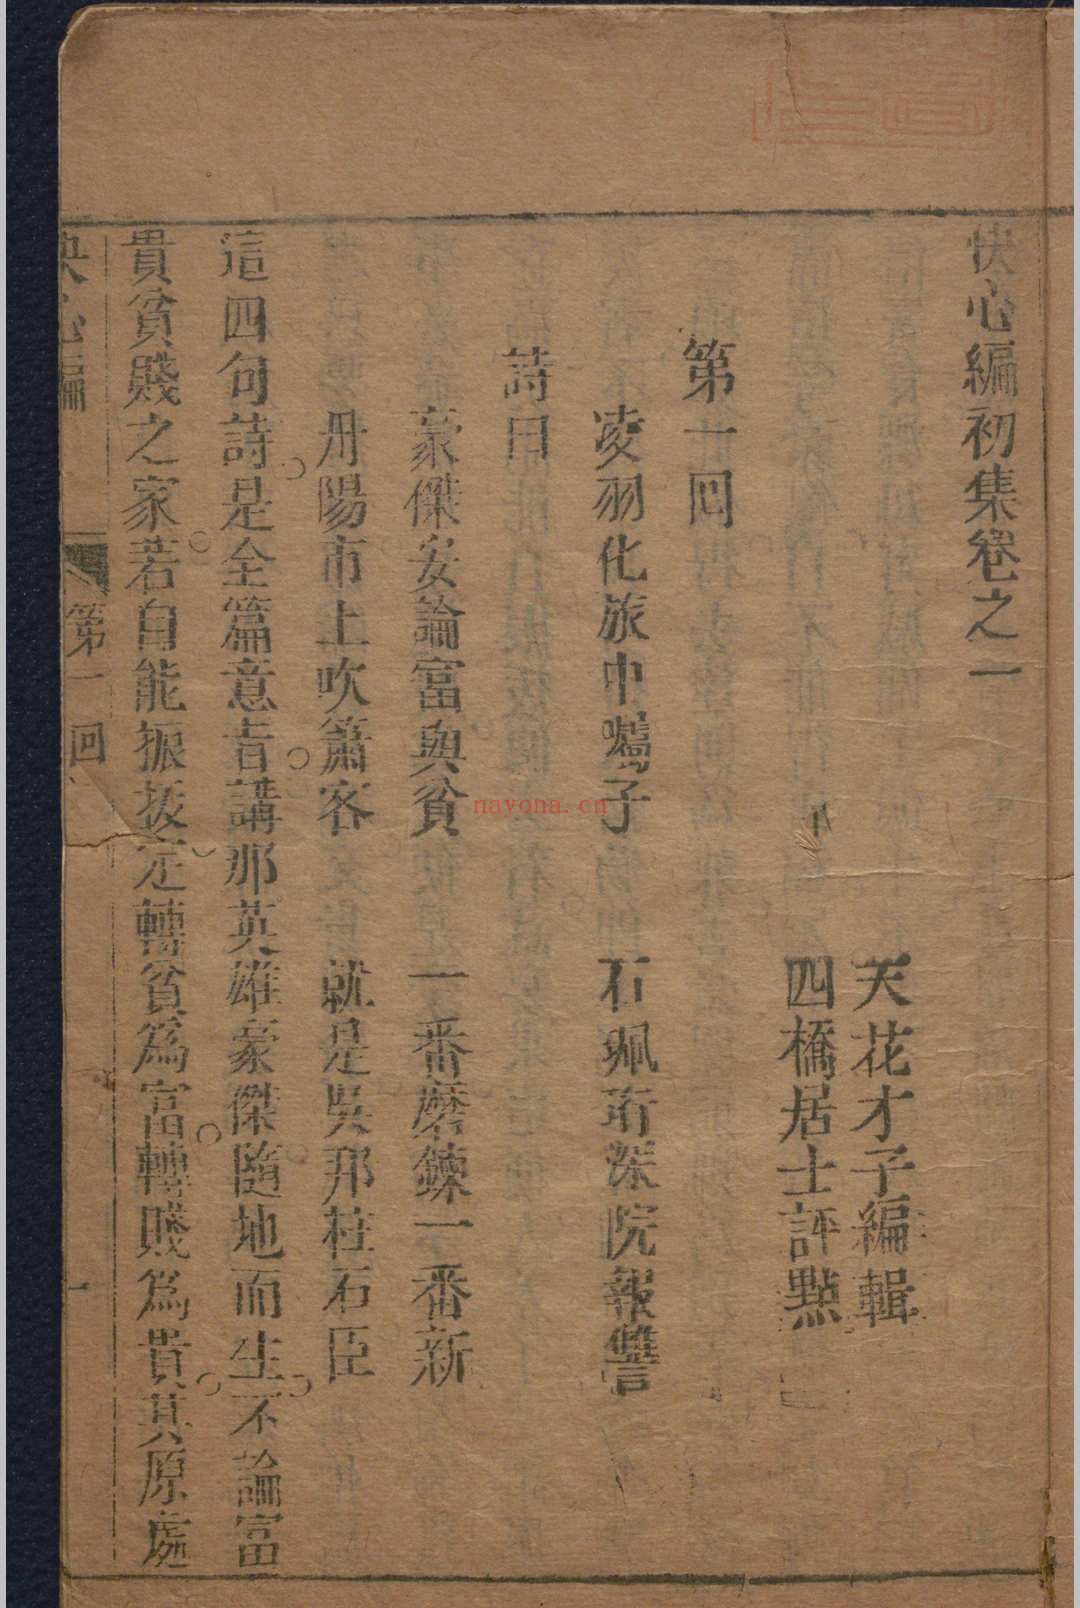 快心編初集卷之一
天花才子編輯
四橋居士評點
第一回
凌羽化旅中囑子 石珮珩深院報讐
詩曰
豪傑安論富與貧 一番磨鍊一番新
丹陽市上吹簫客 就是吳那柱石臣
這四句詩是全篇意旨講那英雄豪傑隨地而生不論富
貴貧賤之家若自能振拔定轉貧爲富轉賤爲貴其原處
快心編 第一回 一
nayona.cn